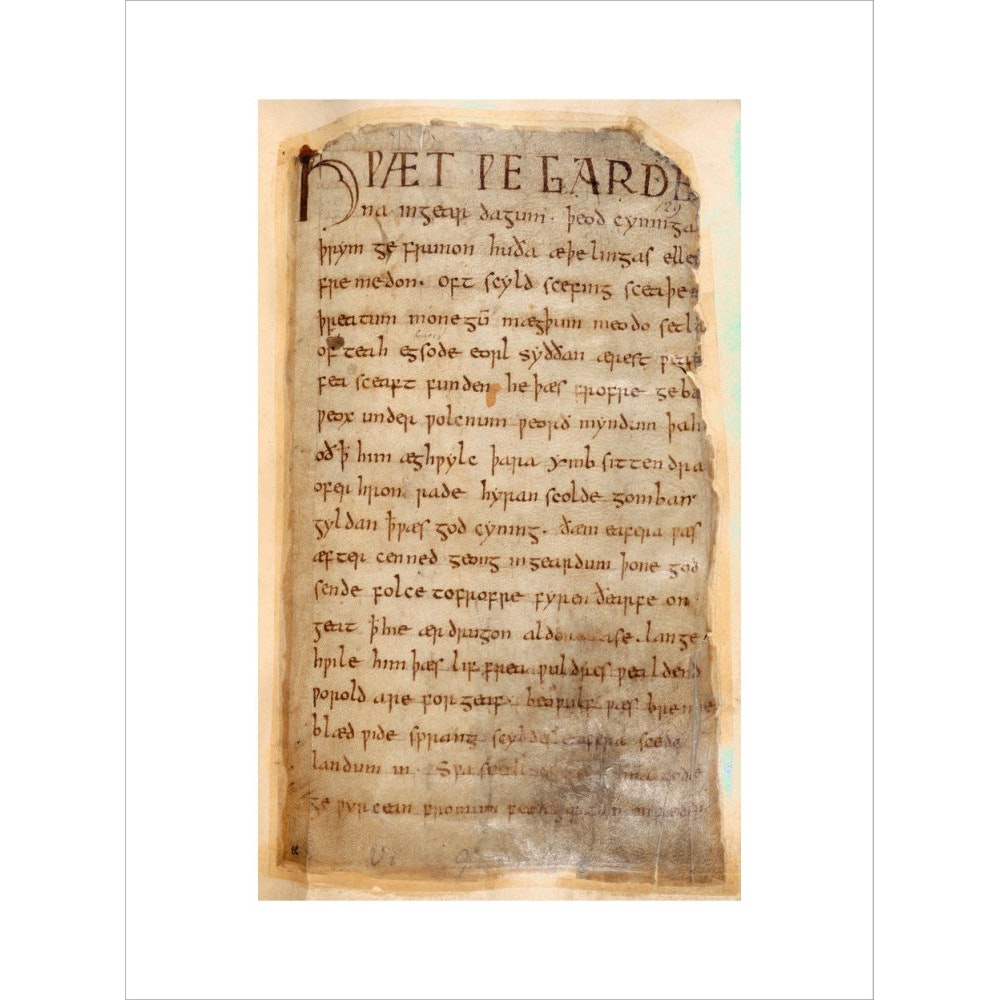 HǷÆT ǷE GARDE
na ingear dagum. þeod cyninga
þrym ge frunon huða æþelingas elle
fre medon. oft scyld scefing sceaþe
þreatum monegū mægþum meodo setla
of teah egsode eorl syððan ærest ƿear
fea sceaft funden he þæs frofre geba
ƿeox under ƿolcnum ƿeorð myndum þah
oð ꝥ him æghƿylc þara ymb sittendra
ofer hron rade hyran scolde gomban
gyldan ꝥ ƿæs god cyning. ðæm eafera ƿæs
æfter cenned geong ingeardum þone god
sende folce tofrofre fyren ðearfe on
geat ꝥ hie ær drugon lange
hƿile him þæs lif frea ƿuldres ƿealdend
ƿorold are forgeaf. beoƿulf ƿæs breme
blæd ƿide sprang scyldes eafera scede
landum in. Sƿa
ge ƿyrcean fromum